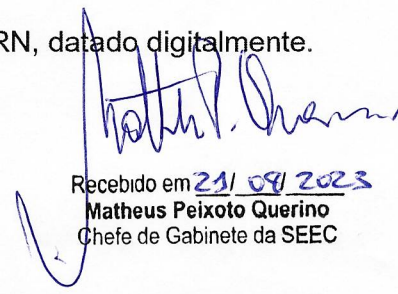 RN, datado digitalmente.
Recebido em 21/ 09/ 2023
Matheus Peixoto Querino
Chefe de Gabinete da SEEC